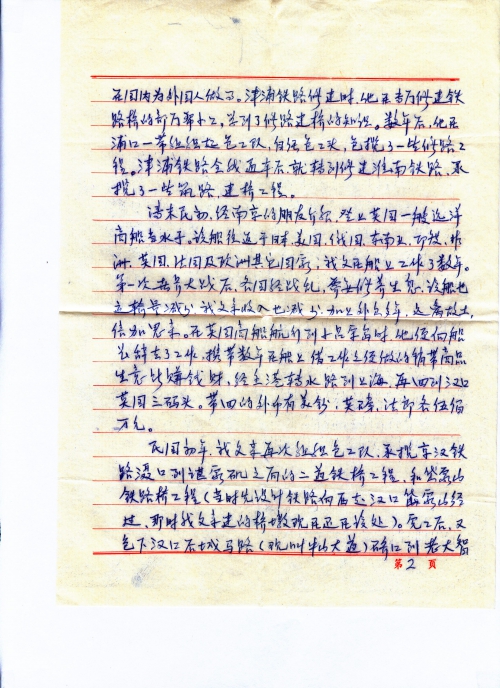 在国内为外国人做了。津浦铁路修建时，他在专门修建铁
路桥的部门帮小工，学到了修路建桥的知识。数年后，他在
浦口一带组织起包工队，自任包工头，包揽了一些修路工
程。津浦铁路全线通车后，就转到修建淮南铁路，承
揽了一些筑路，建桥工程。
清末民初，经南京的朋友介绍，登上英国一艘远洋
商船当水手。该船往返于日本，美国，俄国，东南亚，印度，非
洲，英国，法国及欧洲其它国家，我父在船上工作了数年。
第一次世界大战后，各国经战乱，需要修养生息，该船也
减少，我父亲收入也减少，加上外乡年，远离故土，
倍加思乡。在英国商船航行到上海时，他便向船
长辞去了工作，携带数年在船上借工作之便做的携带商品
生意所赚钱财，经香港转水路到上海，再回到汉口
英国三码头。带回的外币有美钞，英镑，法郎各伍佰
万元。
民国初年，我父亲再次组织包工队，承揽京汉铁
路滠口到谌家矶之间的二道铁桥工程，和
铁路桥工程（当时先设计铁路向西去汉口经
过，那时我父亲建的桥墩现在还在该处）。完工后，又
包下汉口后城马路（现叫中山大道）硚口到老大智
第2頁